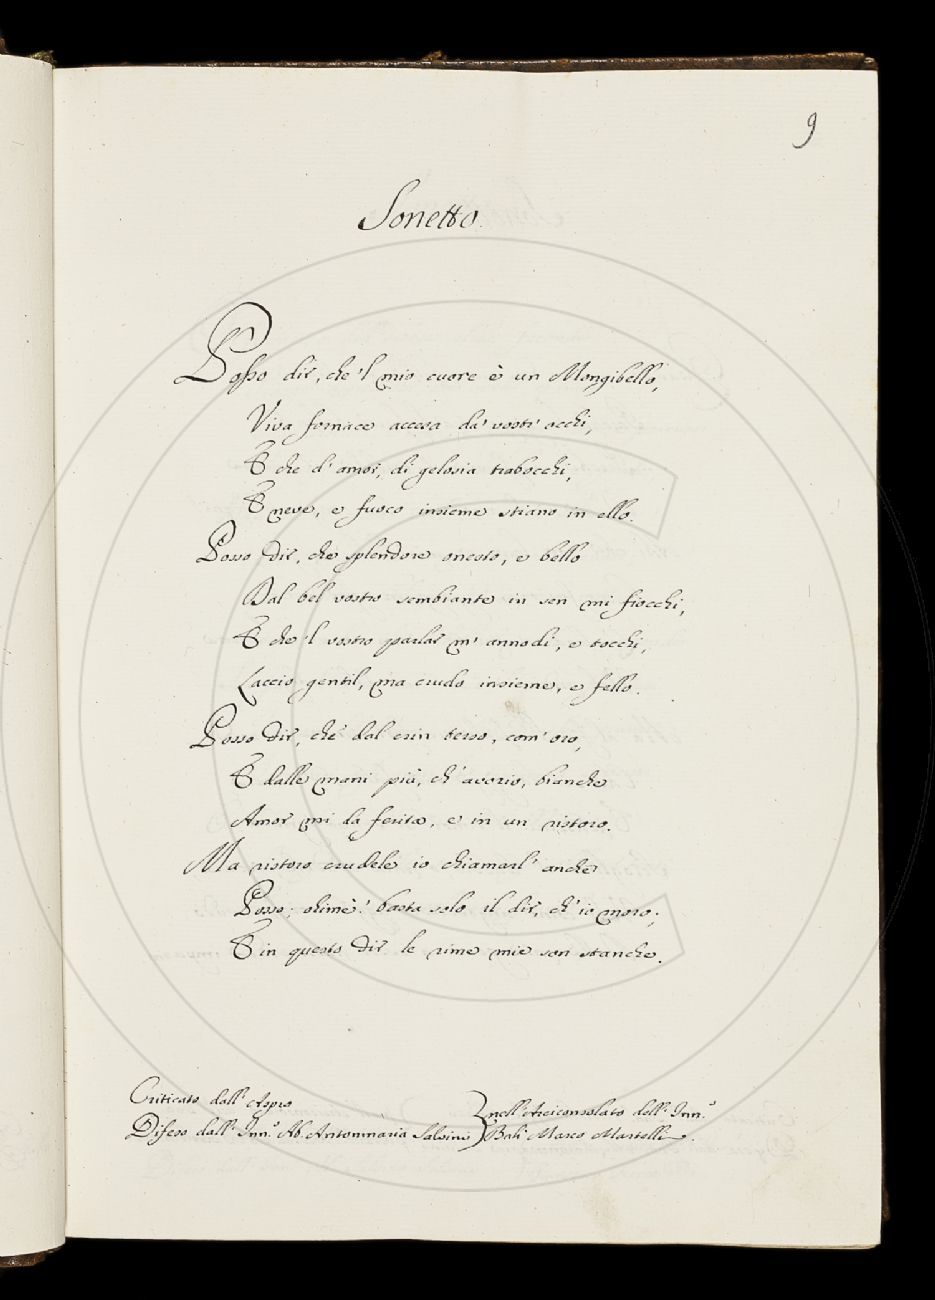 9
Sonetto.
Posso dir, che 'l mio cuore è un Mongibello,
Viva fornace accesa da' vostr' occhi,
E che d' amor, di gelosia trabocchi,
E neve, e fuoco insieme stiano in ello.
Posso dir, che splendore onesto, e bello
Dal bel vostro sembiante in sen mi fiocchi,
E che 'l vostro parlar m' annodi, e tocchi,
Laccio gentil, ma crudo insieme, e fello.
Posso dir, che dal crin terso, com' oro,
E dalle mani più, ch' avorio, bianche
Amor mi da ferita, e in un ristoro.
Ma ristoro crudele io chiamarl' anche
Posso; ohimè! basta solo il dir, ch' io moro;
E in questo dir le rime mie son stanche.
Criticato dall' Aspro
Difeso dall' Inn.º Ab. Antonmaria Salvini
nell' Arciconsolato dell' Inn.º
Balì Marco Martelli.